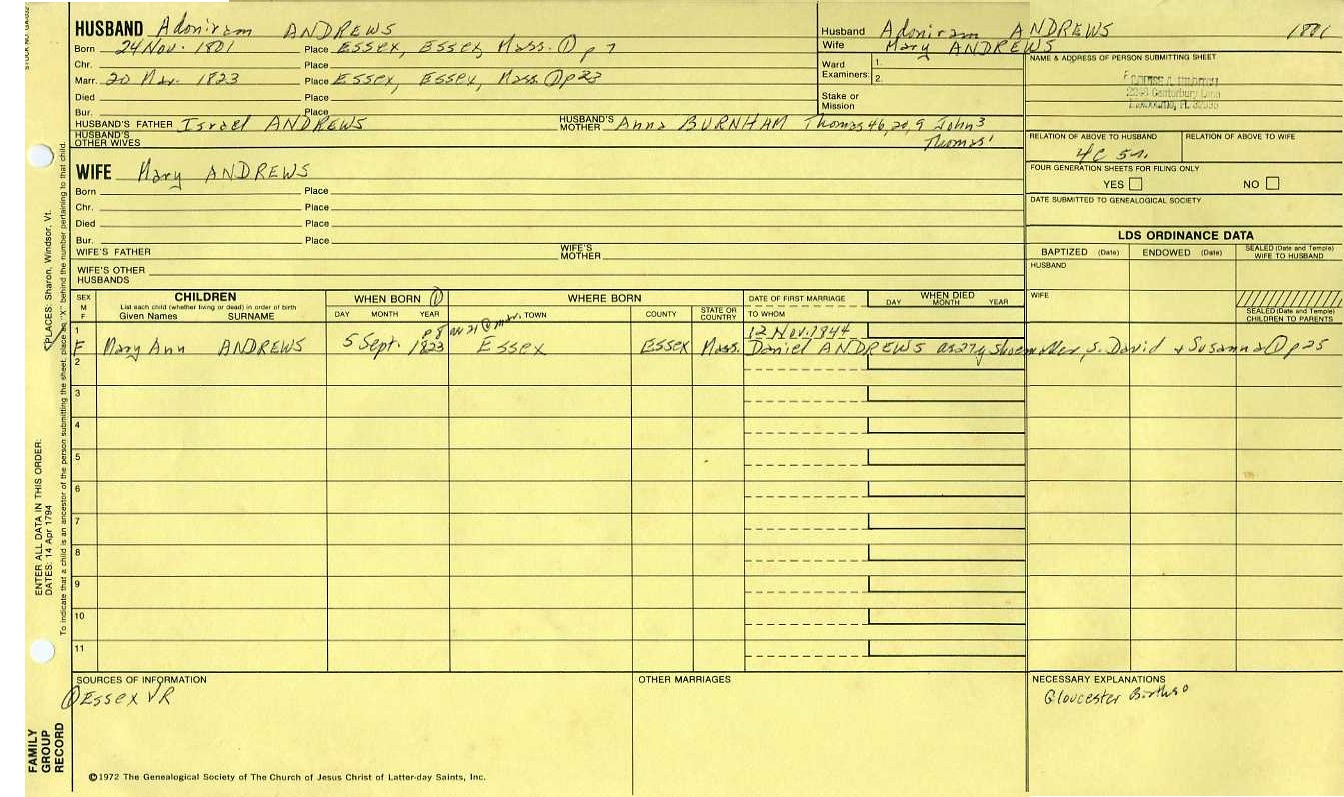 HUSBAND Adoniram ANDREWS
Born 24 Nov. 1801 Place Essex, Essex, Mass. ① p 7
Chr. Place
Marr. 20 Mar. 1823 Place Essex, Essex, Mass. ① p23
Died Place
Bur. Place
HUSBAND'S FATHER Israel ANDREWS HUSBAND'S MOTHER Anna BURNHAM Thomas 46, 20, 9 John 3
HUSBAND'S OTHER WIVES Thomas 1
WIFE Mary ANDREWS
Born Place
Chr. Place
Died Place
Bur. Place
WIFE'S FATHER WIFE'S MOTHER
WIFE'S OTHER HUSBANDS
Husband Adoniram ANDREWS 1801
Wife Mary ANDREWS
Ward Examiners: 1.
2.
Stake or Mission
NAME & ADDRESS OF PERSON SUBMITTING SHEET
2290 Canterbury Lane
Melbourne, Fl. 32935
RELATION OF ABOVE TO HUSBAND RELATION OF ABOVE TO WIFE
4C 5r.
FOUR GENERATION SHEETS FOR FILING ONLY
YES NO
DATE SUBMITTED TO GENEALOGICAL SOCIETY
LDS ORDINANCE DATA
BAPTIZED (Date) ENDOWED (Date) SEALED (Date and Temple) WIFE TO HUSBAND
HUSBAND
WIFE
SEALED (Date and Temple) CHILDREN TO PARENTS
SEX M F CHILDREN WHEN BORN ① WHERE BORN DATE OF FIRST MARRIAGE WHEN DIED
List each child (whether living or dead) in order of birth
Given Names SURNAME DAY MONTH YEAR TOWN COUNTY STATE OR COUNTRY TO WHOM DAY MONTH YEAR
1 p 8 ae 21 @ mar. 12 Nov. 1844
F Mary Ann ANDREWS 5 Sept. 1823 Essex Essex Mass. Daniel ANDREWS as 27y shoemaker, s. David & Susanna ① p 25
2
3
4
5
6
7
8
9
10
11
SOURCES OF INFORMATION OTHER MARRIAGES NECESSARY EXPLANATIONS
① Essex VR Gloucester Births 0
©1972 The Genealogical Society of The Church of Jesus Christ of Latter-day Saints, Inc.
STOCK NO.
PLACES: Sharon, Windsor, Vt.
To indicate that a child is an ancestor of the person submitting the sheet, place an "X" behind the number pertaining to that child.
ENTER ALL DATA IN THIS ORDER:
DATES: 14 Apr 1794
FAMILY GROUP RECORD